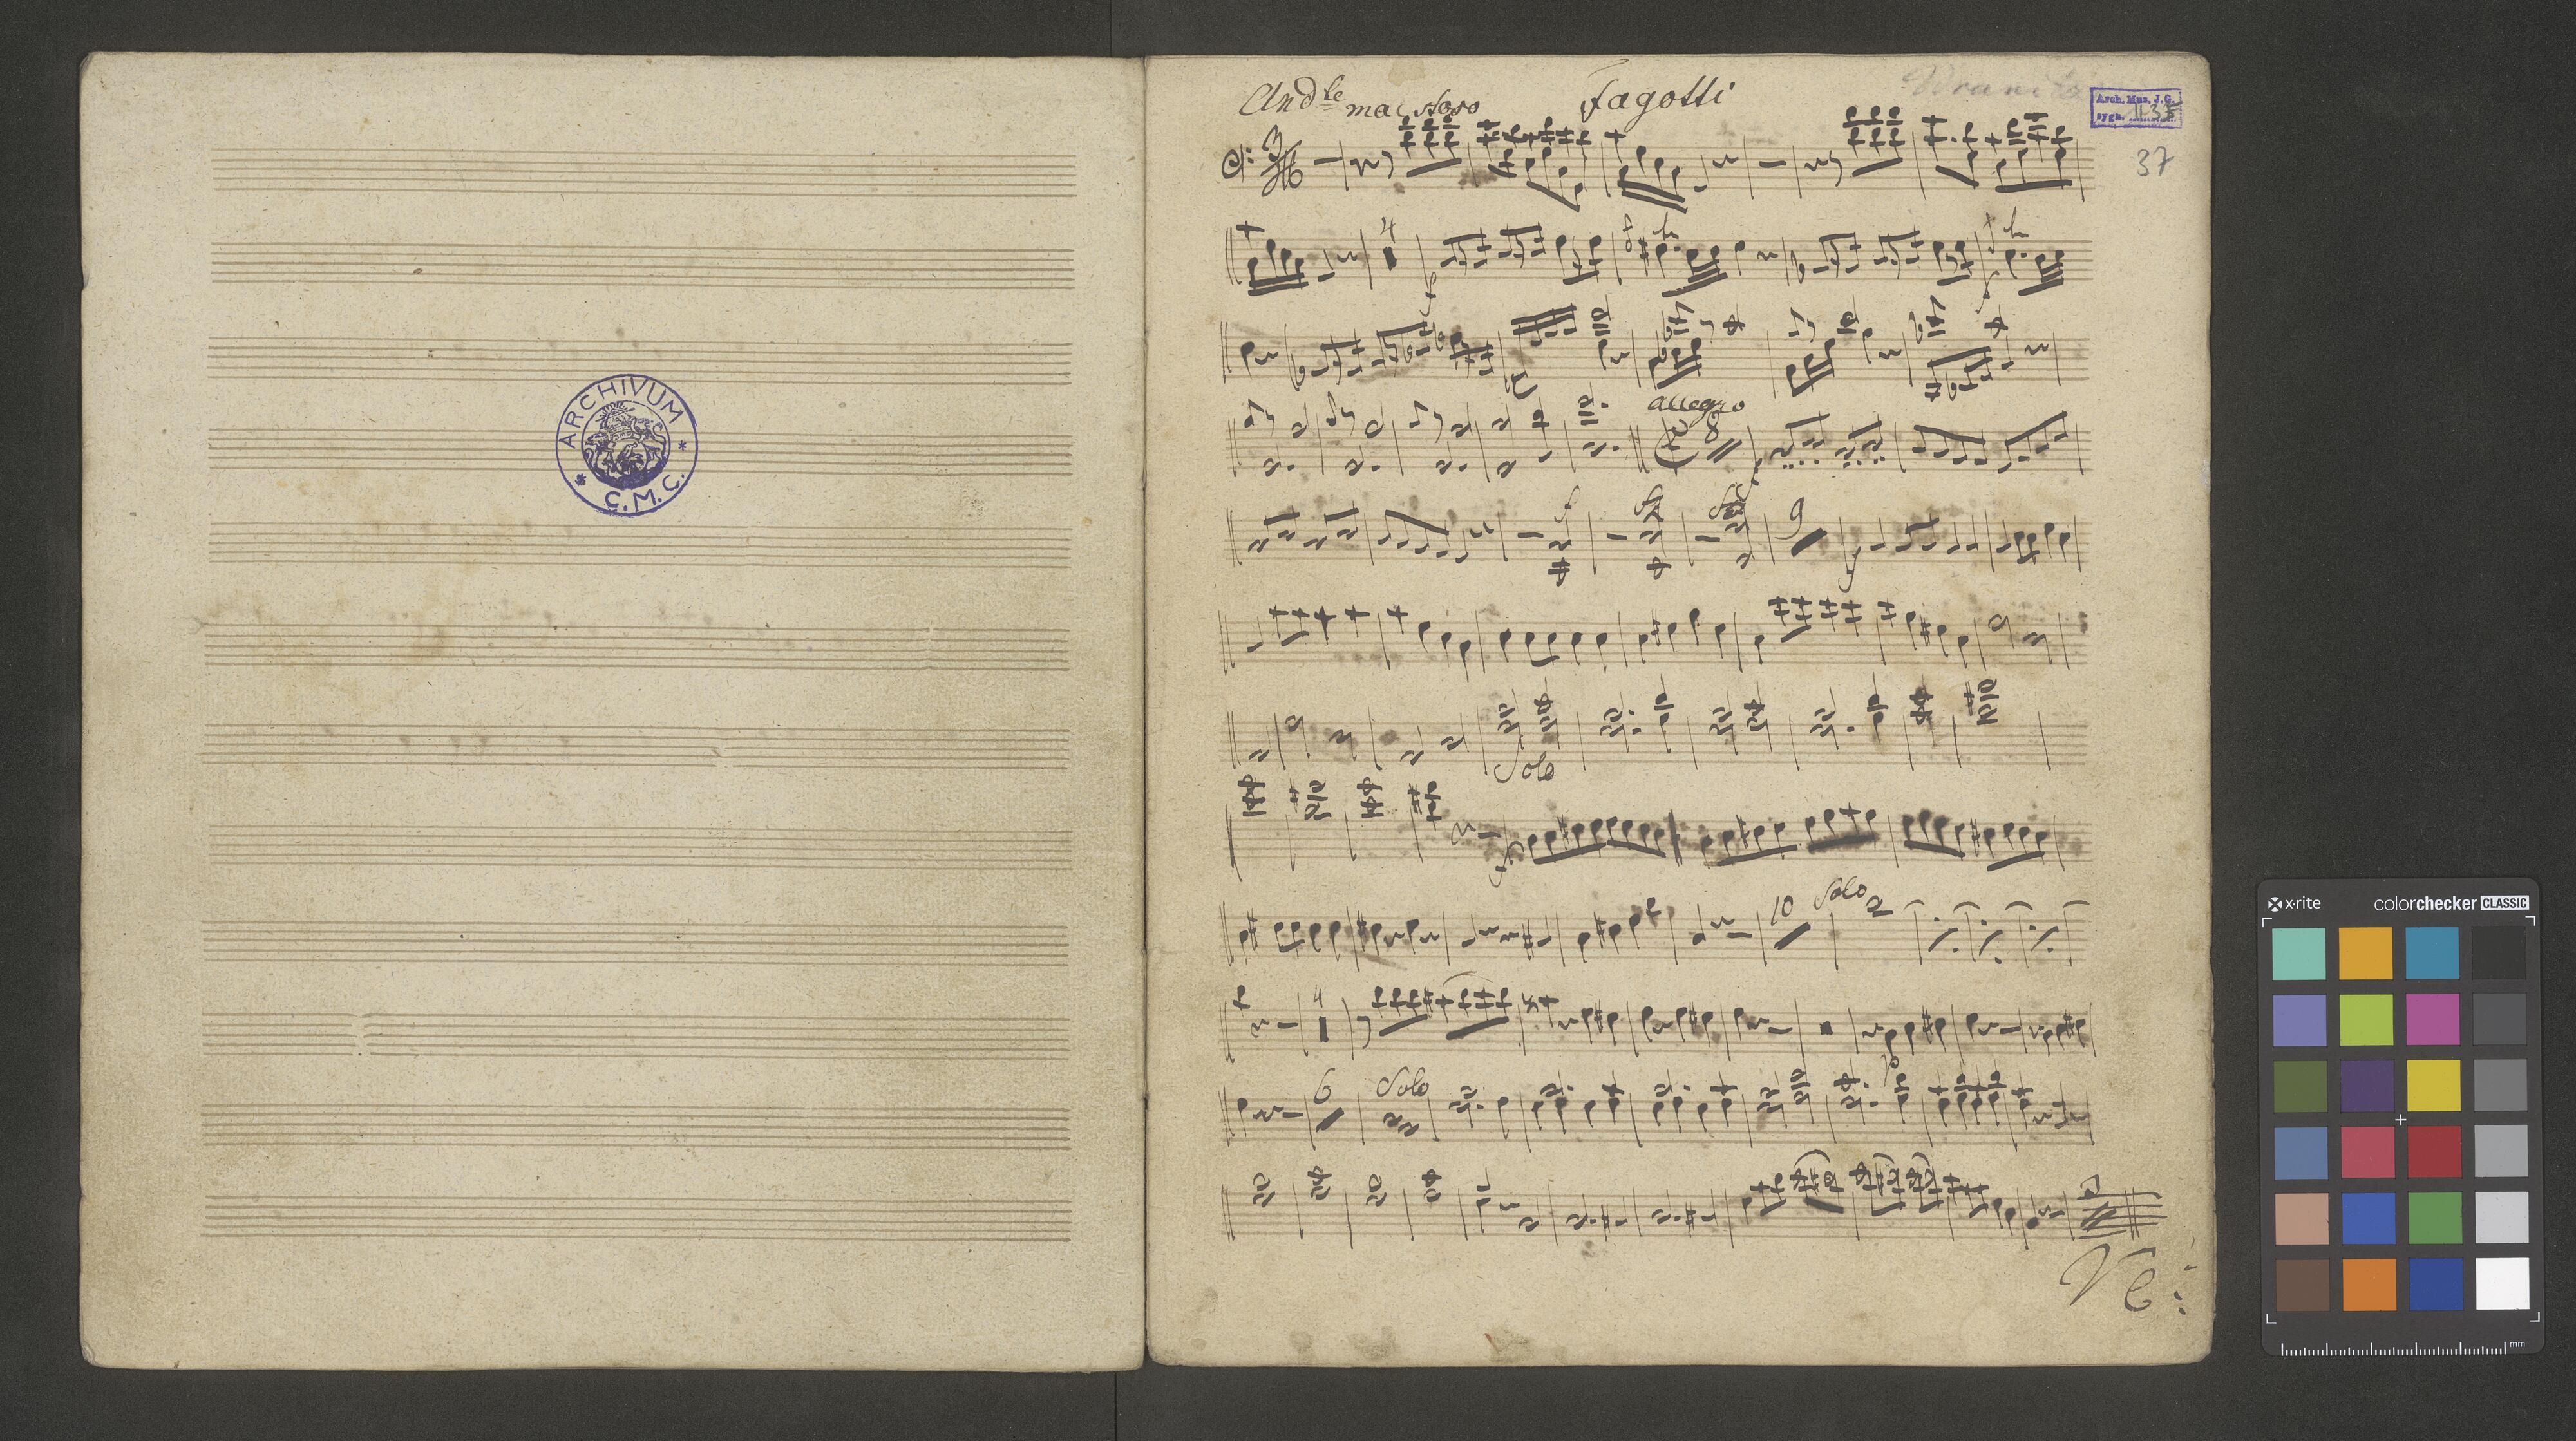 ARCHIVUM
* C.M.C. *
Andte maestoso Fagotti
Arch. Muz. J.G.
sygn. II-37
37
3
4
f
allegro
8
f
f
9
f
Solo
f
10 Solo
4
6 Solo
p
x-rite colorchecker CLASSIC
mm